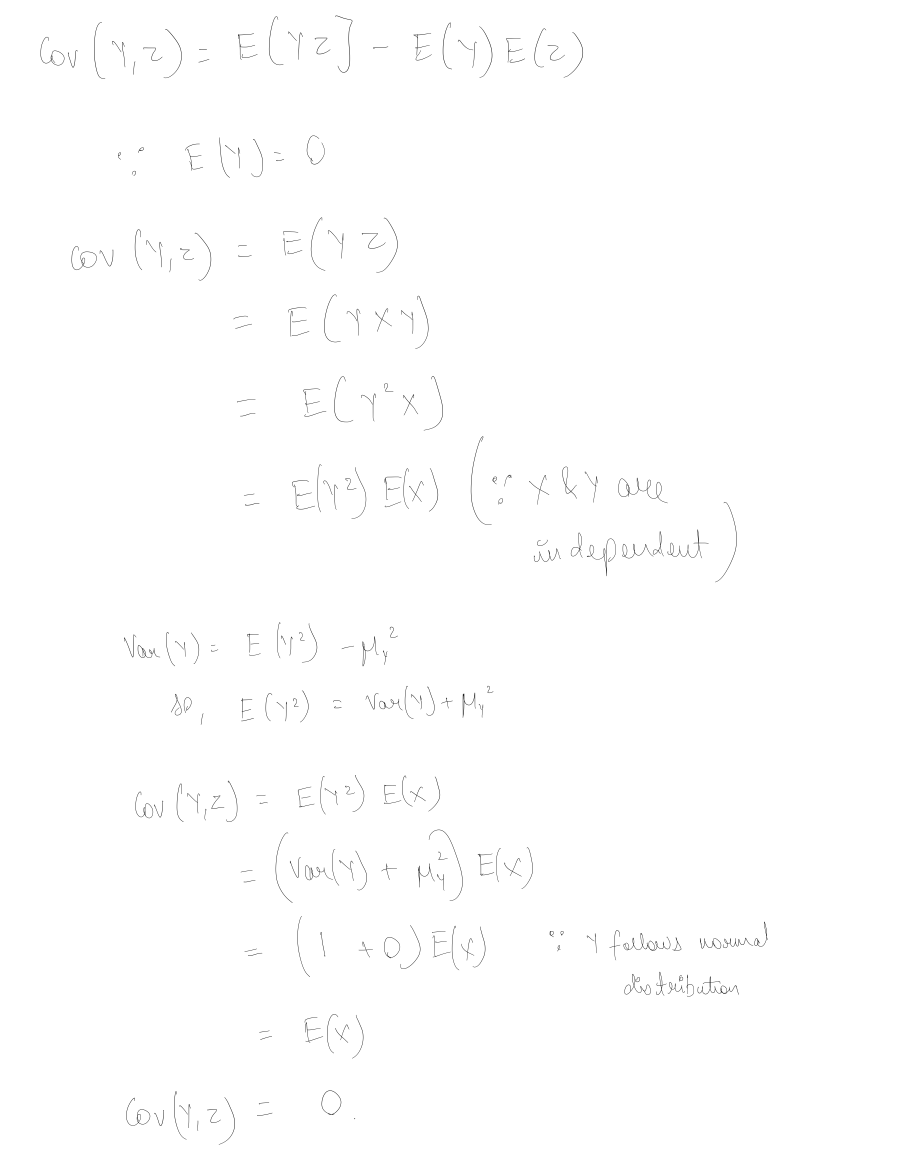 Cov (Y,Z) = E(YZ] - E(Y) E(Z)
∵ E(Y) = 0
Cov (Y,Z) = E(YZ)
= E(YXY)
= E(Y²X)
= E(Y²) E(X) (∵ X & Y are
independent)
Var(Y) = E(Y²) - μ_Y²
so, E(Y²) = Var(Y) + μ_Y²
Cov (Y,Z) = E(Y²) E(X)
= (Var(Y) + μ_Y²) E(X)
= (1 + 0) E(X) ∵ Y follows normal
distribution
= E(X)
Cov(Y,Z) = 0.